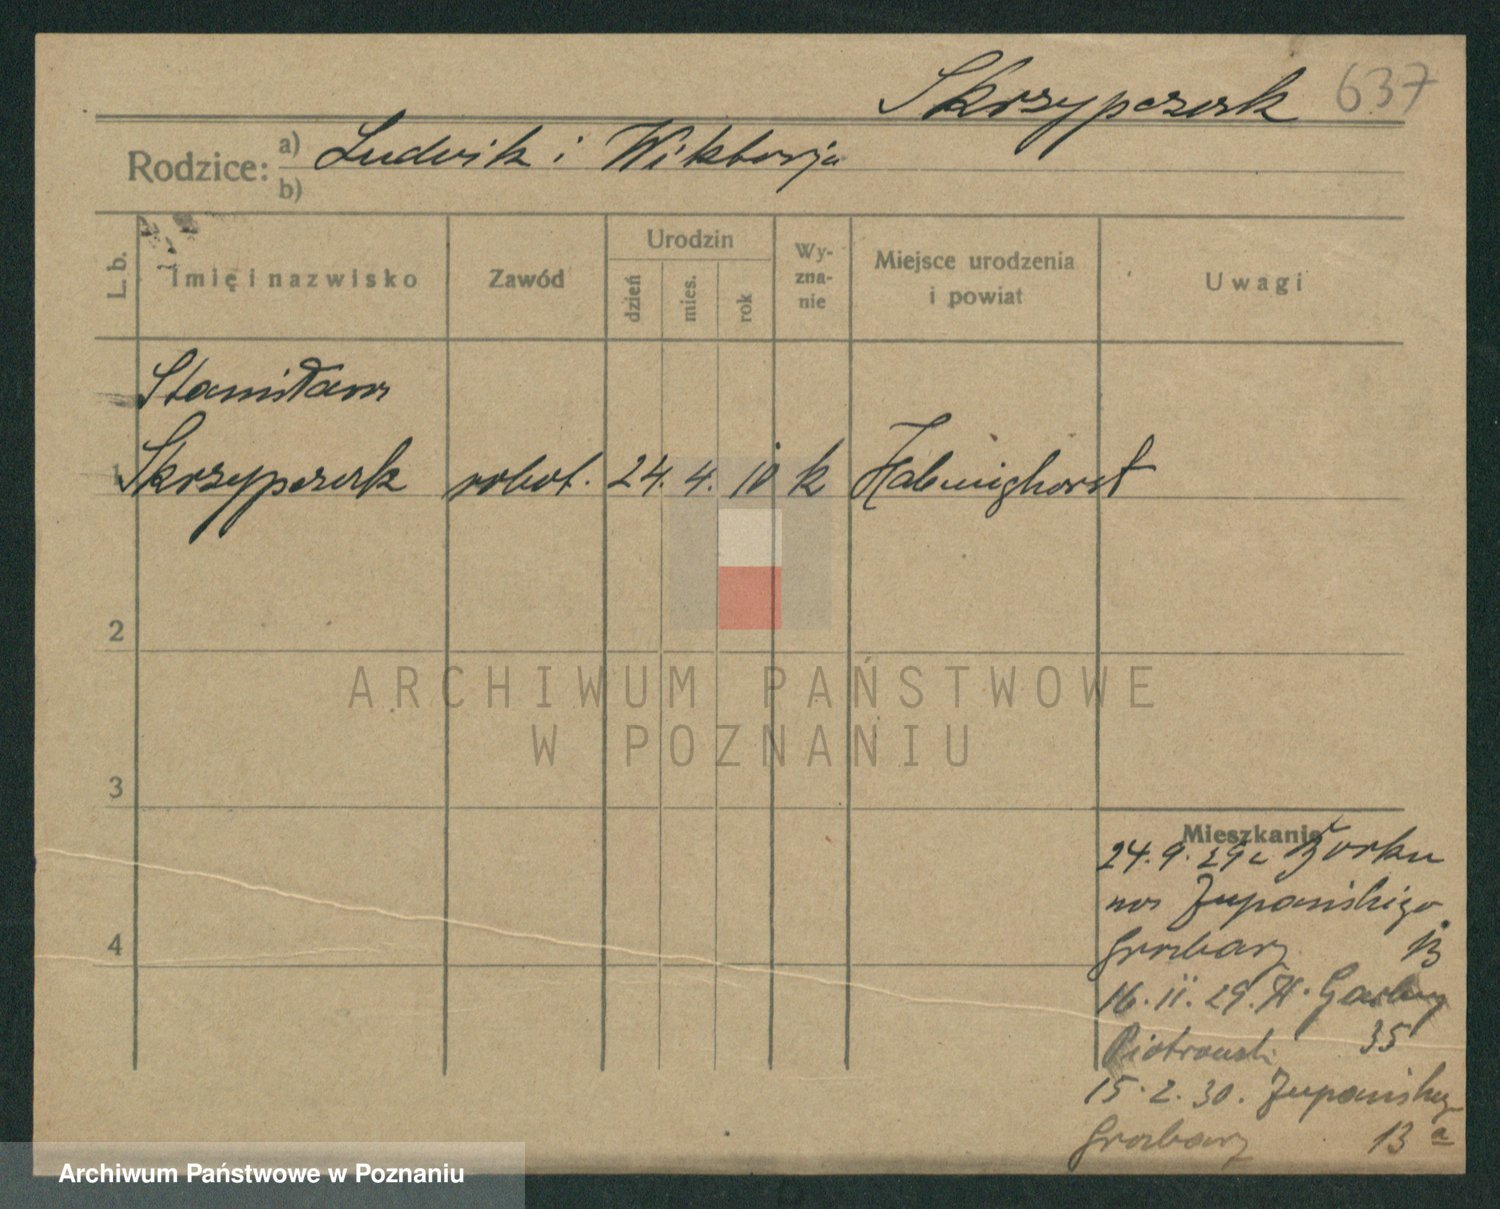 Skrzypczak 637
Rodzice: a) Ludwik i Wiktorja
b)
L. b.
Imię i nazwisko
Zawód
Urodzin
dzień
mies.
rok
Wy-
zna-
nie
Miejsce urodzenia
i powiat
Uwagi
Stanisław
1 Skrzypczak robot. 24. 4. 10 k Habinghorst
2
ARCHIWUM PAŃSTWOWE
W POZNANIU
3
Mieszkanie
24. 9. 29 z Żorku
Żupańskiego
4
Grobarz 13
16. 11. 29. H. Garbary
Piotrowski 35
15. 2. 30. Żupańskieg
Grobarz 13 a
Archiwum Państwowe w Poznaniu